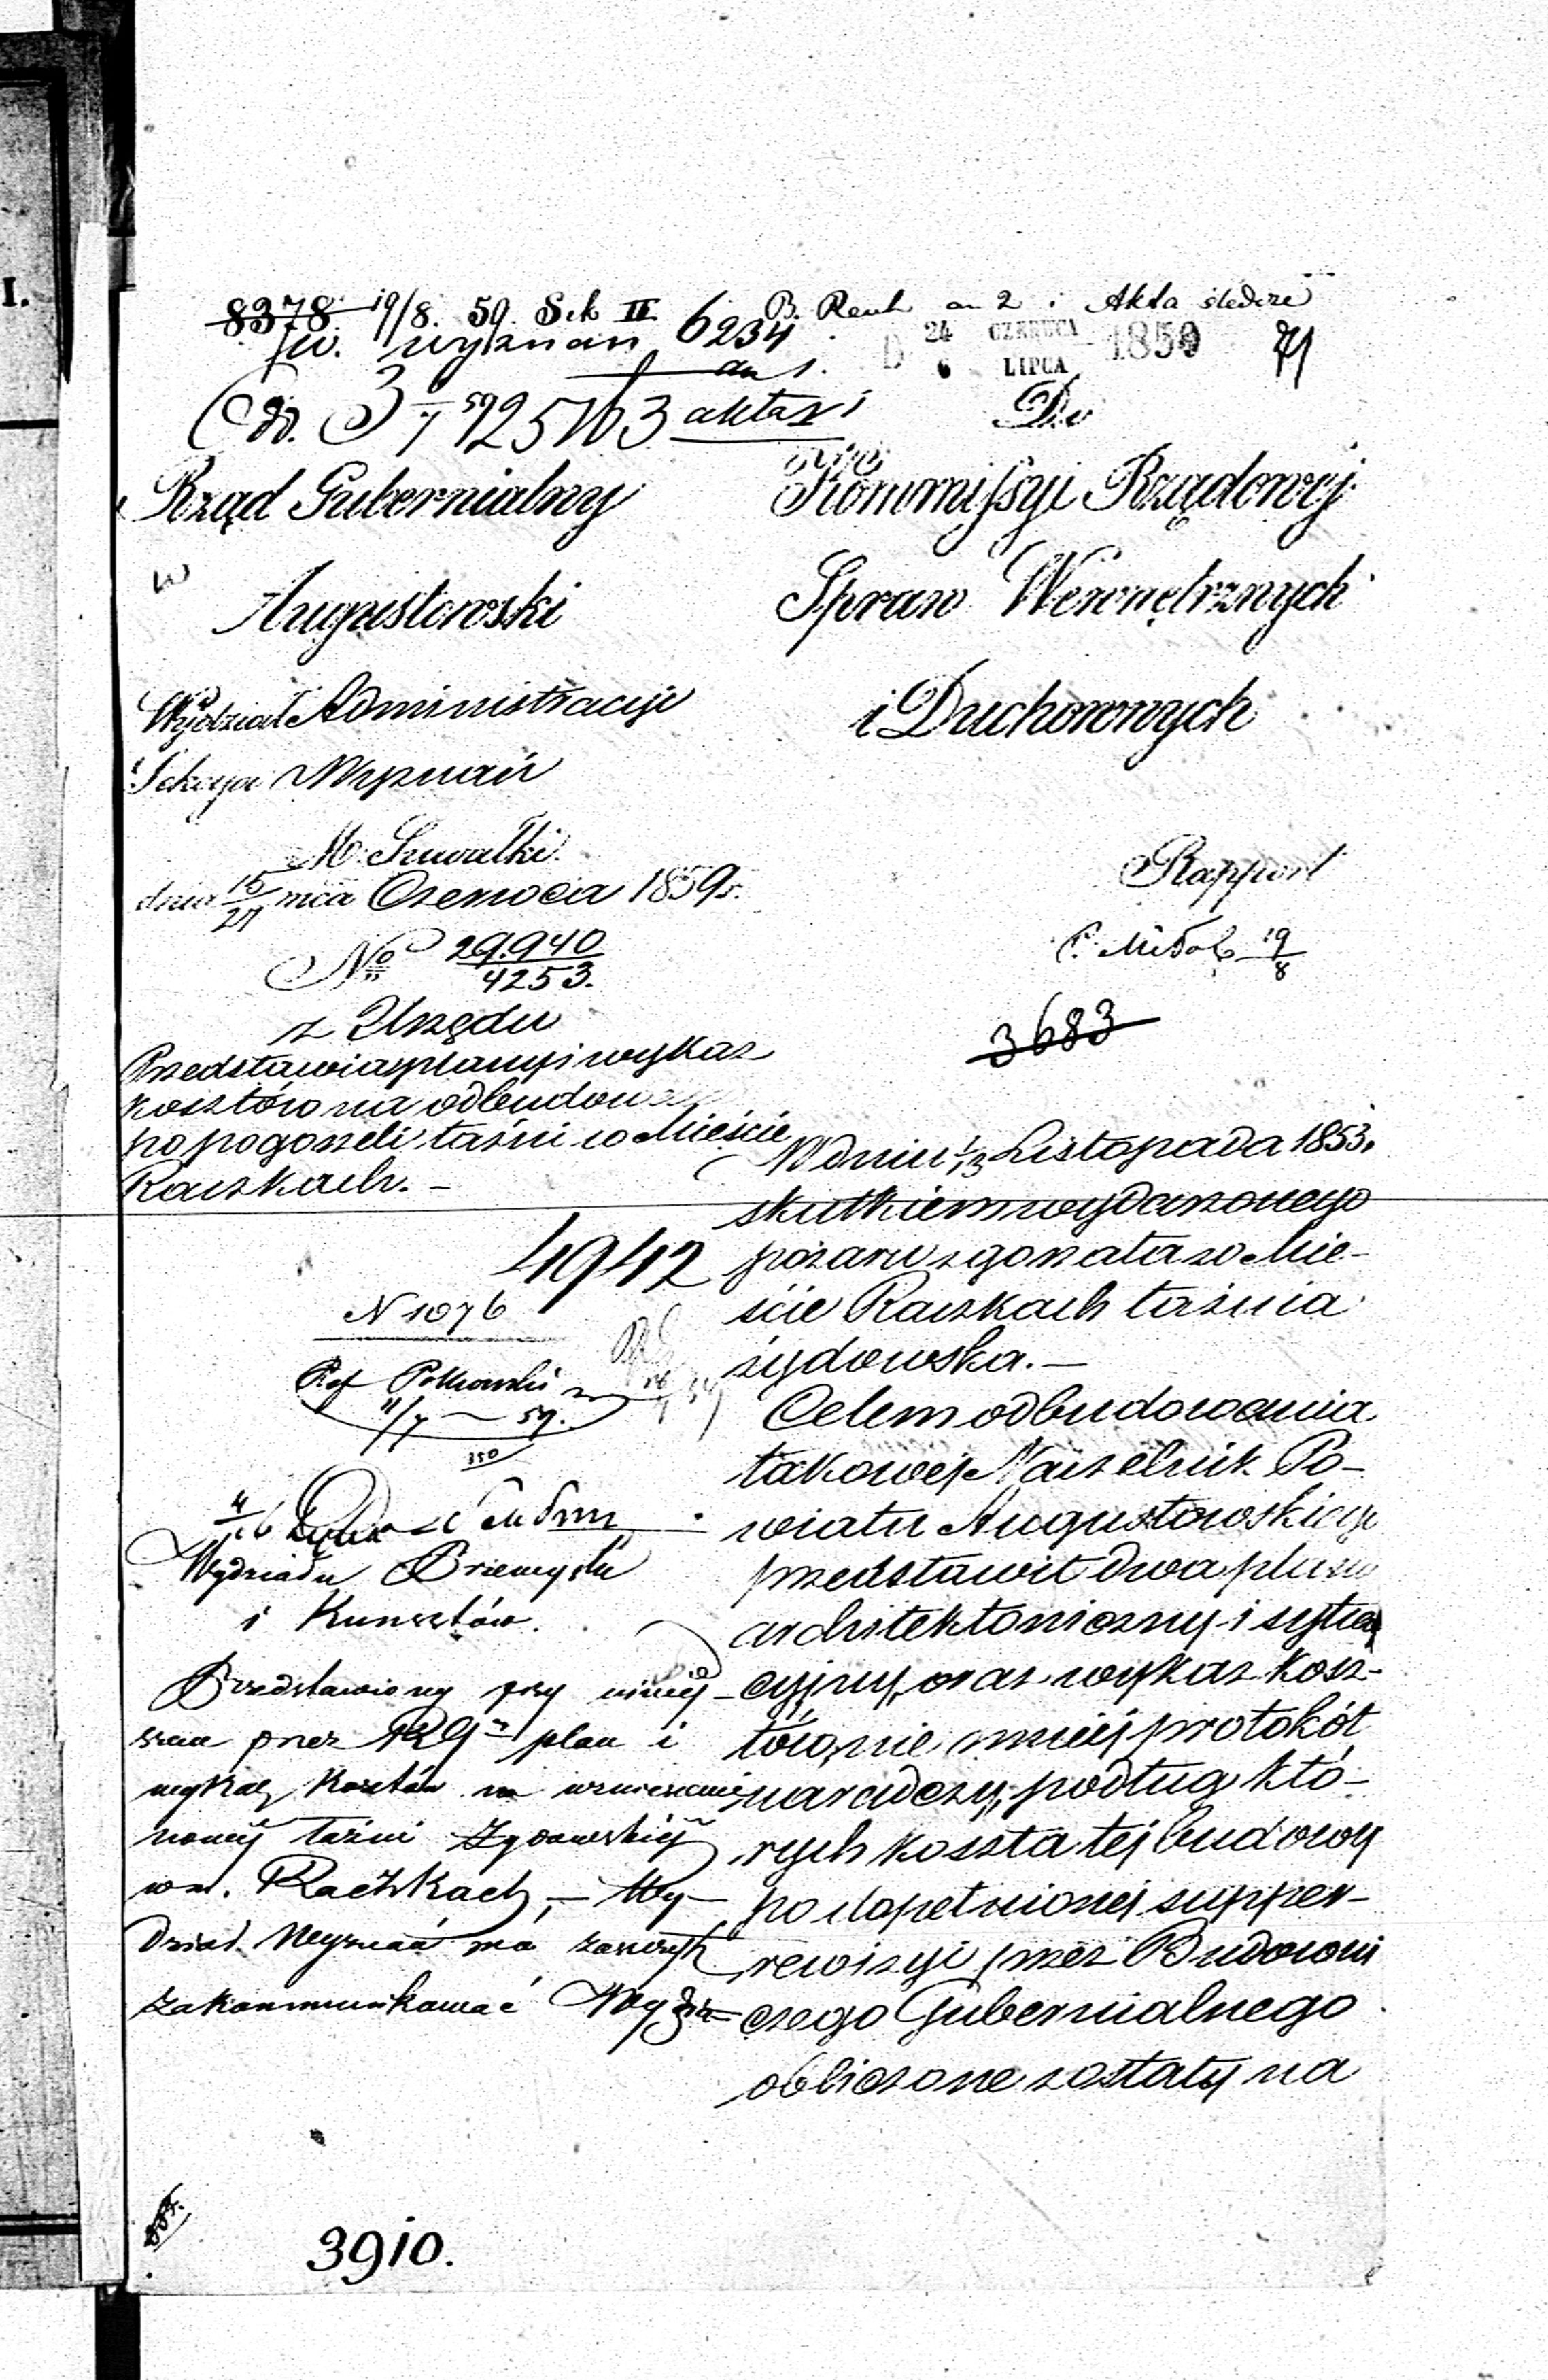 I.
8378. 19/8. 59. Sek II
w. wyznan 6234
an 2 i Akta śledcze
D 24 CZERWCA 1859
6 LIPCA
akta i
Do
Rząd Gubernialny
Augustowski
Wydział Administracyi
Sekcya Wyznań
M. Suwałki
dnia 15/27 mca Czerwca 1859 r.
No 29.940/4253.
z Urzędu
Przedstawia plany i wykaz
kosztów na odbudowę
po pogorzeli łaźni w Mieście
Raczkach. –
4942
N 1076
11/7 – 59.
Wydziału Przemysłu
i Kunsztów.
Przedstawiony przy niniej-
szem przez plan i
wykaz kosztów na wzniesienie
nowej łaźni Żydowskiej
w m. Raczkach, – Wy-
dział Wyznań ma zaszczyt
zakommunikować Wydzia-
3910.
Kommissyi Rządowej
Spraw Wewnętrznych
i Duchownych
Rapport
19/8
3683
W dniu 1/13 Listopada 1853.
skutkiem wydarzonego
pożaru zgorzała w Mie-
ście Raczkach łaźnia
żydowska. –
Celem odbudowania
takowej Naczelnik Po-
wiatu Augustowskiego
przedstawił dwa plany
architektoniczny i sytua
cyjny, oraz wykaz kosz-
tów, nie mniej protokół
naradczy, podług któ-
rych koszta tej budowy
po dopełnionej supper-
rewizyi przez Budowni
czego Gubernialnego
obliczone zostały na